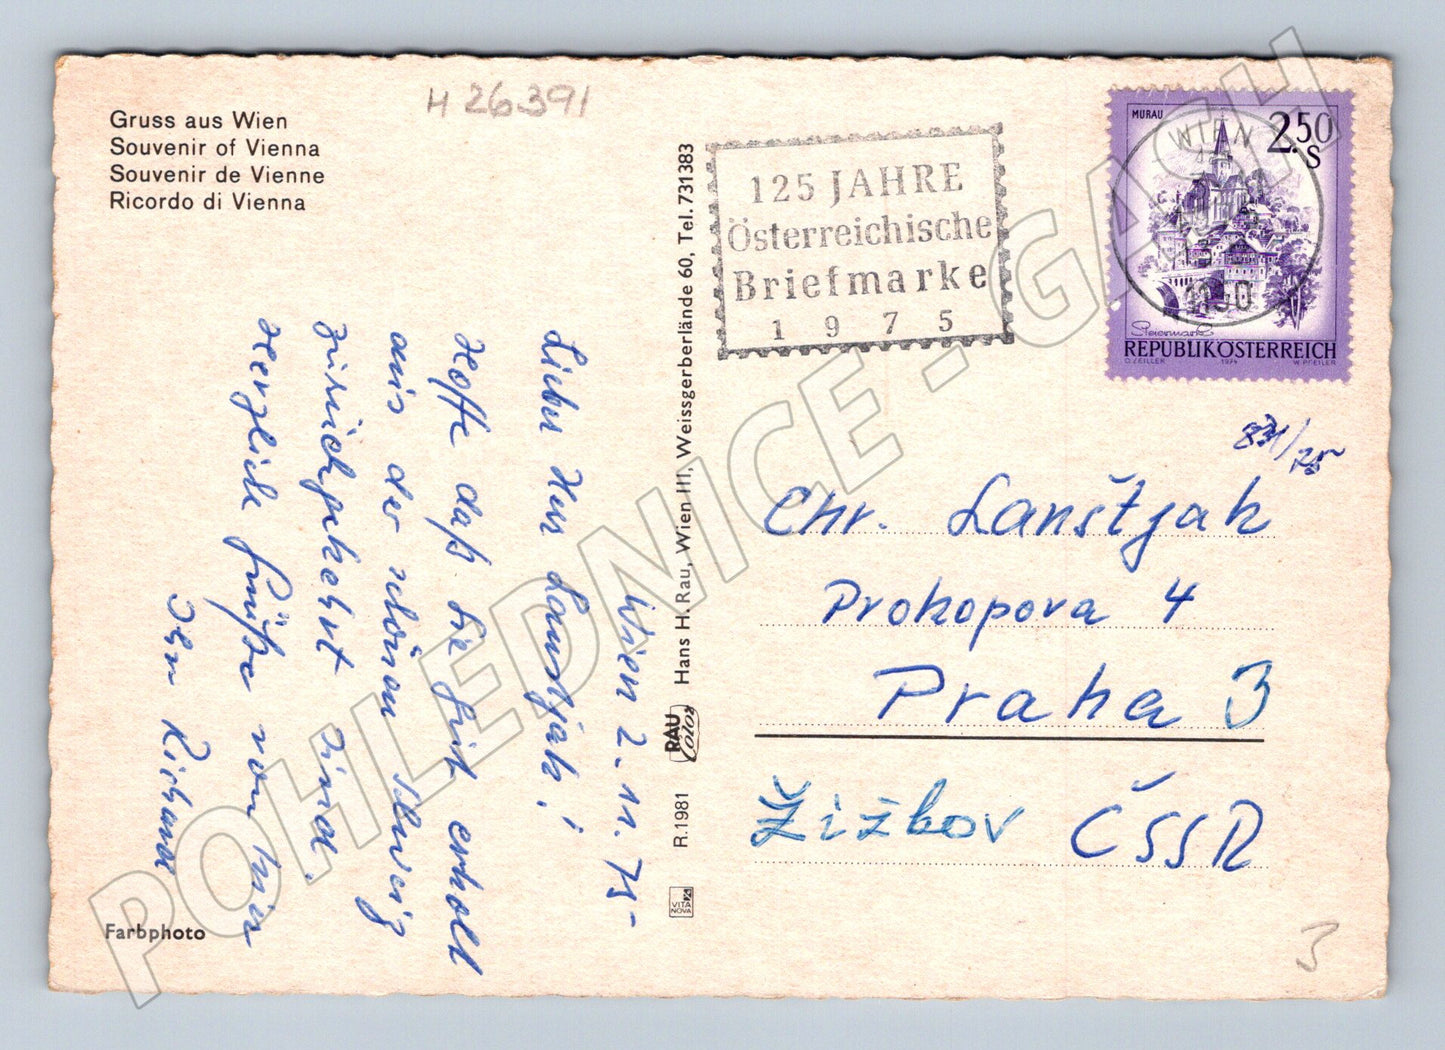 H 26391
Gruss aus Wien
Souvenir of Vienna
Souvenir de Vienne
Ricordo di Vienna
Wien 2. 11. 75
Lieber Herr Lanstjak!
Hoffe daß Sie gut erholt
aus der schönen Schweiz
zurückgekehrt sind.
Herzliche Grüße von
Ihr Richard
Farbphoto
R.1981 RAU Color Hans H. Rau, Wien III, Weissgerberlände 60, Tel. 731383
VITA NOVA
125 JAHRE
Österreichische
Briefmarke
1975
MURAU
2.50
S
WIEN
Steiermark
REPUBLIK ÖSTERREICH
O. ZEILLER 1974 W. PFEILER
831/75
Chr. Lanštjak
Prokopova 4
Praha 3
Žižkov ČSSR
3
POHLEDNICE - GASH